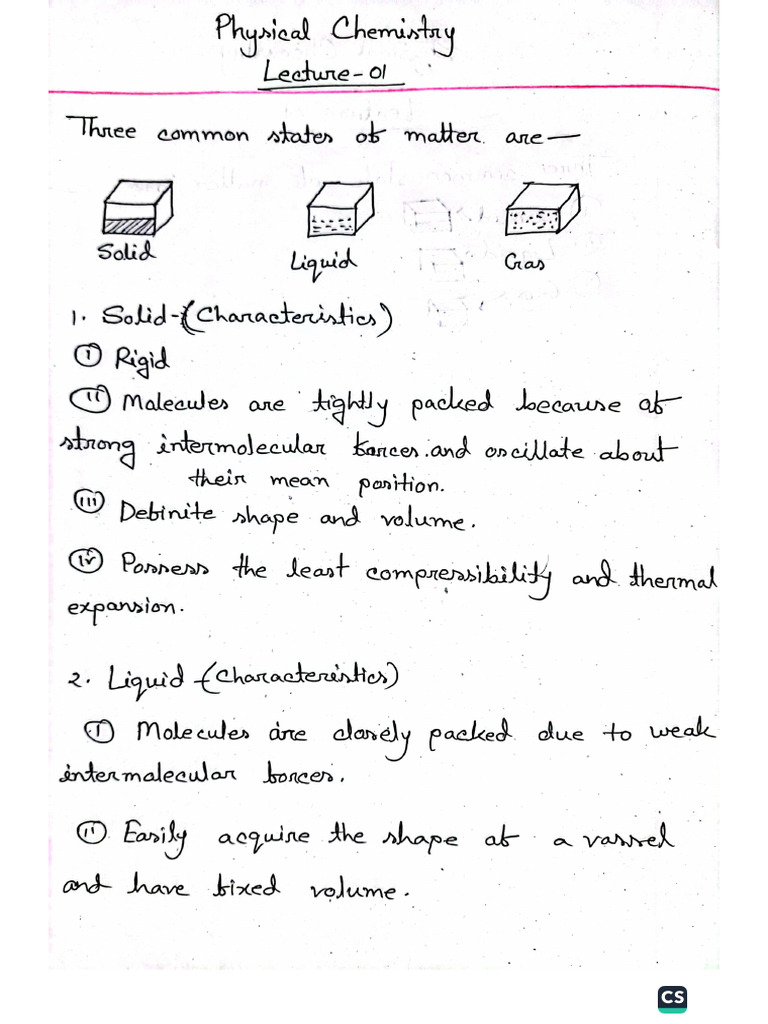 Physical Chemistry
Lecture-01
Three common states of matter are—
Solid
Liquid
Gas
1. Solid-(Characteristics)
(i) Rigid
(ii) Molecules are tightly packed because of
strong intermolecular forces and oscillate about
their mean position.
(iii) Definite shape and volume.
(iv) Possess the least compressibility and thermal
expansion.
2. Liquid-(Characteristics)
(i) Molecules are closely packed due to weak
intermolecular forces.
(ii) Easily acquire the shape of a vassel
and have fixed volume.
CS